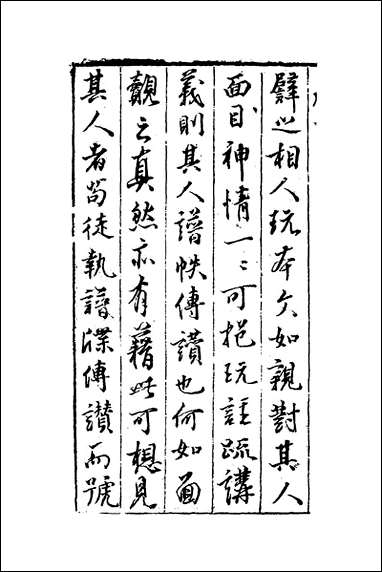 譬之相人玩本文如親對其人
面目神情一〻可挹玩註疏講
義則其人譜帙傳讚也何如面
覿之真然亦有藉此可想見
其人者苟徒執譜牒傳讚而號